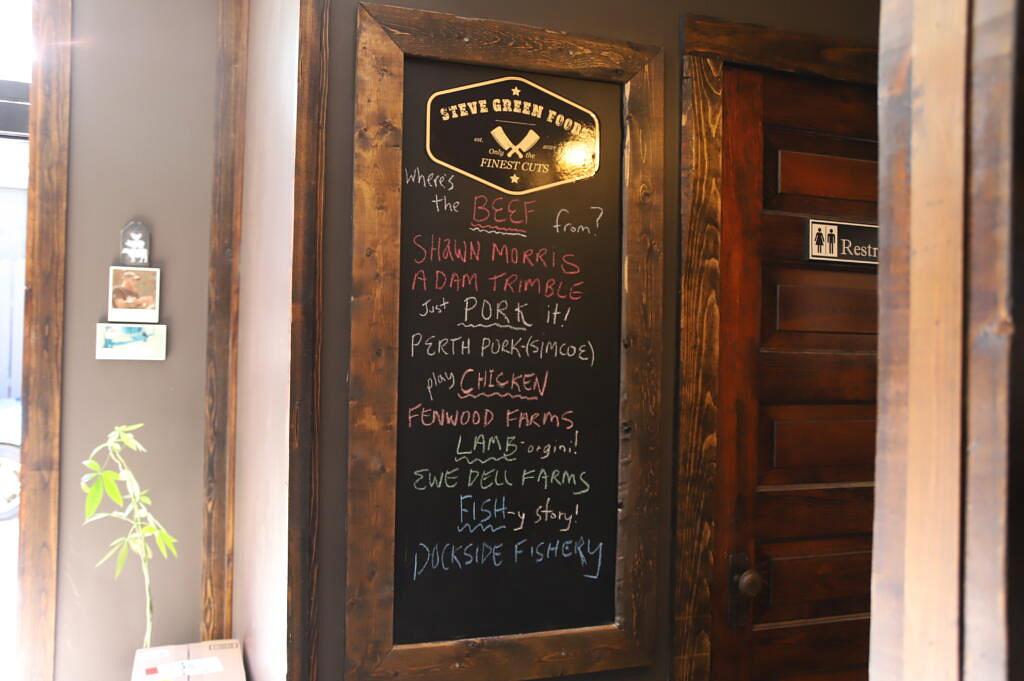 STEVE GREEN FOODS
est.
Only the
FINEST CUTS
Where's
the BEEF from?
SHAWN MORRIS
ADAM TRIMBLE
Just PORK it!
PERTH PORK-(SIMCOE)
play CHICKEN
FENWOOD FARMS
LAMB-orgini!
EWE DELL FARMS
FISH-y story!
DOCKSIDE FISHERY
Restr